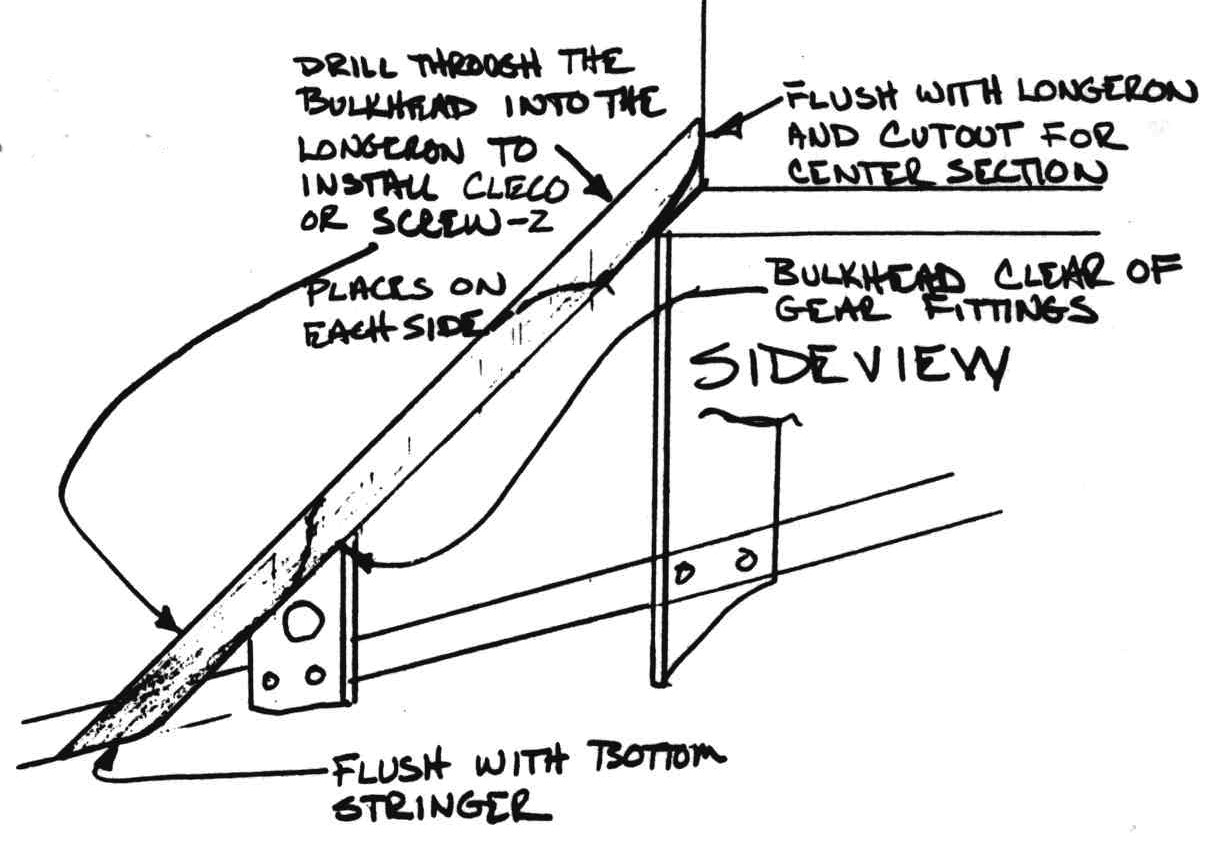 DRILL THROUGH THE
BULKHEAD INTO THE
LONGERON TO
INSTALL CLECO
OR SCREW-2
PLACES ON
EACH SIDE
FLUSH WITH LONGERON
AND CUTOUT FOR
CENTER SECTION
BULKHEAD CLEAR OF
GEAR FITTINGS
SIDEVIEW
FLUSH WITH BOTTOM
STRINGER